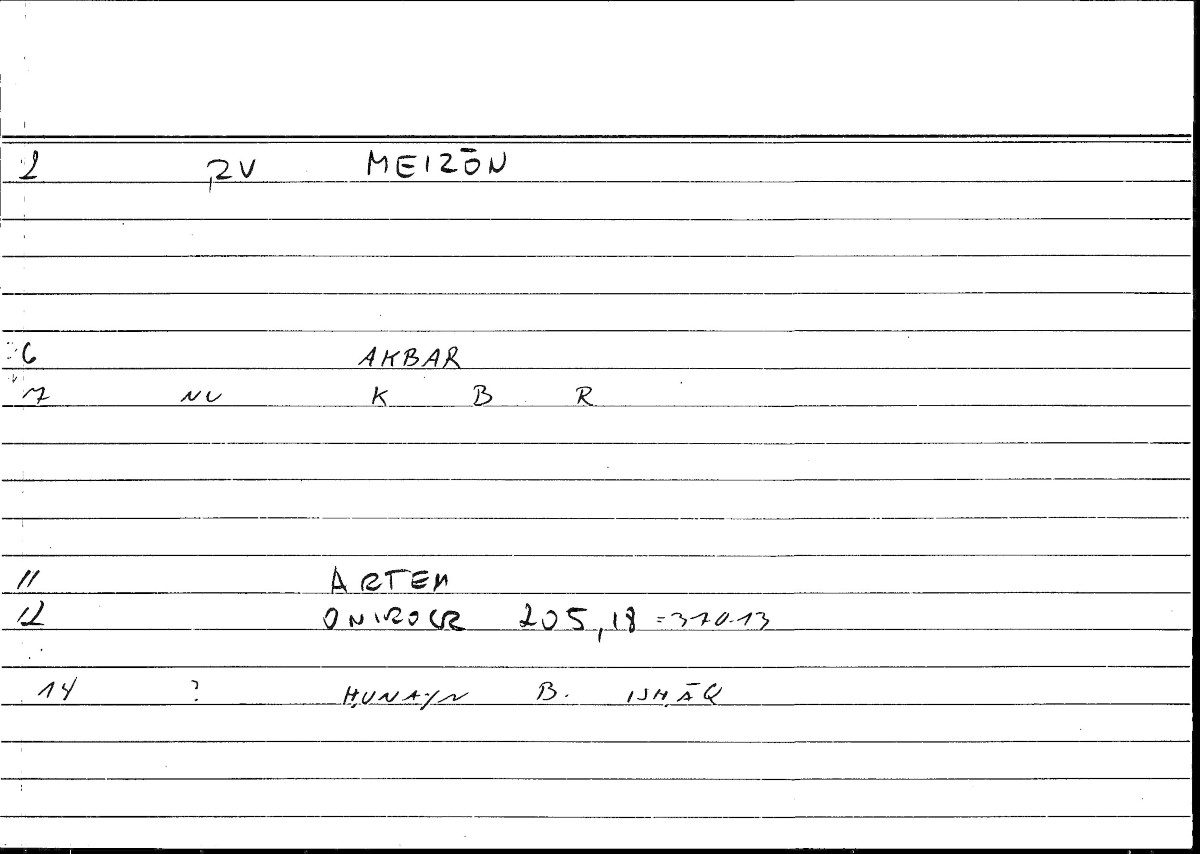 2 ,2V MEIZŌN
6 AKBAR
7 NU K B R
11 ARTEM
12 ONIROCR 205,18 =370.13
14 ? ḤUNAYN B. ISḤĀQ